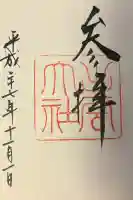 参拜
大社
平成二十七年十一月一日